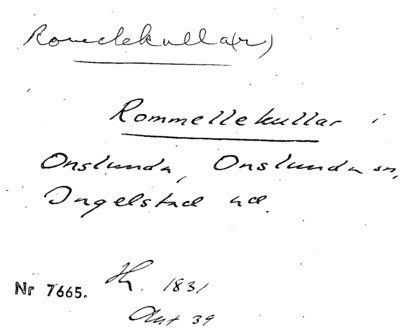 Romelekulla(r)
Rommellekullar i
Onslunda, Onslunda sn,
Ingelstad hd.
Nr 7665. Hz. 1831
Akt 39